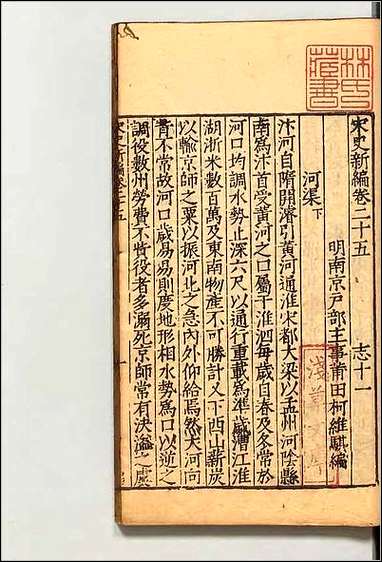 宋史新編卷二十五　志十一
明南京戸部主事莆田柯維騏編
河渠下
汴河自隋開濬引黃河通淮宋都大梁以孟州河陰縣
南爲汴首受黃河之口屬于淮泗每歲自春及冬常於
河口均調水勢止深六尺以通行重載爲準歲漕江淮
湖浙米數百萬及東南物產不可勝計又下西山薪炭
以輸京師之粟以振河北之急內外仰給焉然大河向
背不常故河口歲易易則度地形相水勢爲口以逆之
調役數州勞費不貲役者多溺死京師常有決溢之虞
宋史新編卷二十五
林氏藏書